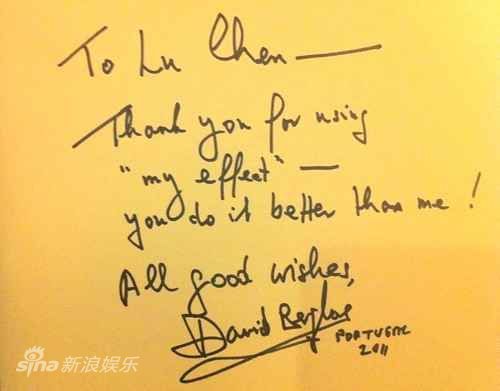 To Lu Chen —
Thank you for using
"my effect" —
you do it better than me!
All good wishes,
David Berglas
PORTUGAL
2011
sina 新浪娱乐